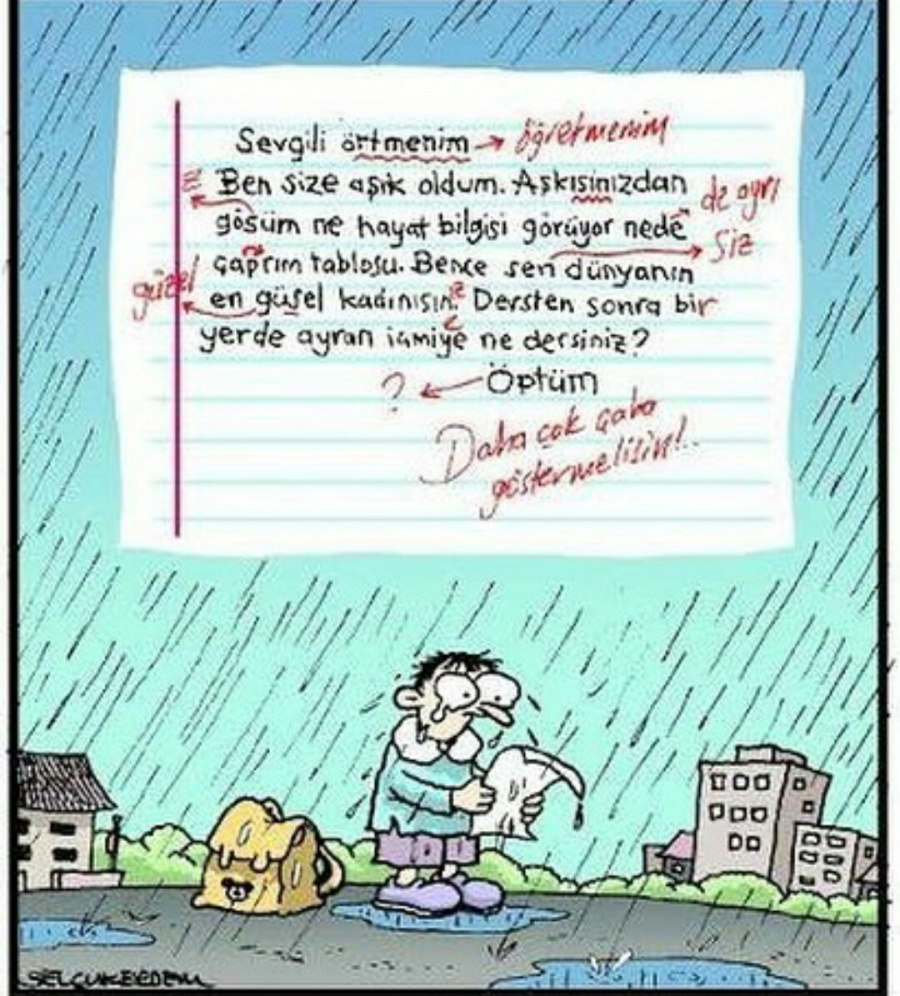 Sevgili örtmenim → öğretmenim
z Ben size aşık oldum. Aşkısinizdan de ayrı
gösüm ne hayat bilgisi görüyor nede siz
güzel çaprım tablosu. Bence sen dünyanın
en güsel kadınısın. z Dersten sonra bir
yerde ayran içmiye ne dersiniz?
e
? ← Öptüm
Daha çok çaba
göstermelisin!..
SELÇUK ERDEM